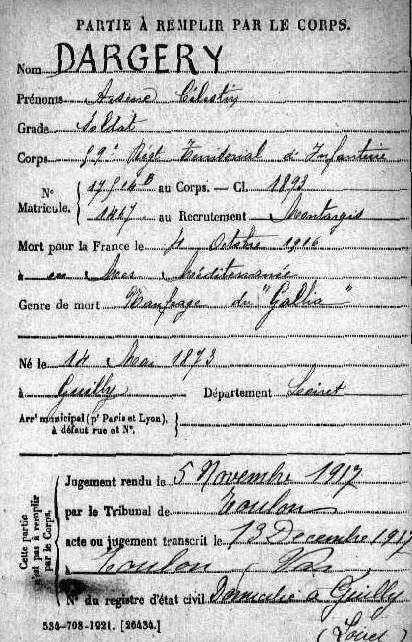 PARTIE À REMPLIR PAR LE CORPS.
Nom DARGERY
Prénoms Arsène Célestin
Grade Soldat
Corps 59e Régt Territorial d'Infanterie
N° Matricule. { 17514 B au Corps. — Cl. 1893
1417 au Recrutement Montargis
Mort pour la France le 4 Octobre 1916
à en Mer Méditerranée
Genre de mort Naufrage du "Gallia"
Né le 14 Mai 1873
à Guilly Département Loiret
Arrt municipal (pr Paris et Lyon), à défaut rue et N°. }
Cette partie n'est pas à remplir par le Corps.
Jugement rendu le 5 Novembre 1917
par le Tribunal de Toulon
acte ou jugement transcrit le 13 Decembre 1917
à Toulon Var
N° du registre d'état civil Domicilié à Guilly
(Loiret)
534-708-1921. [26434.]